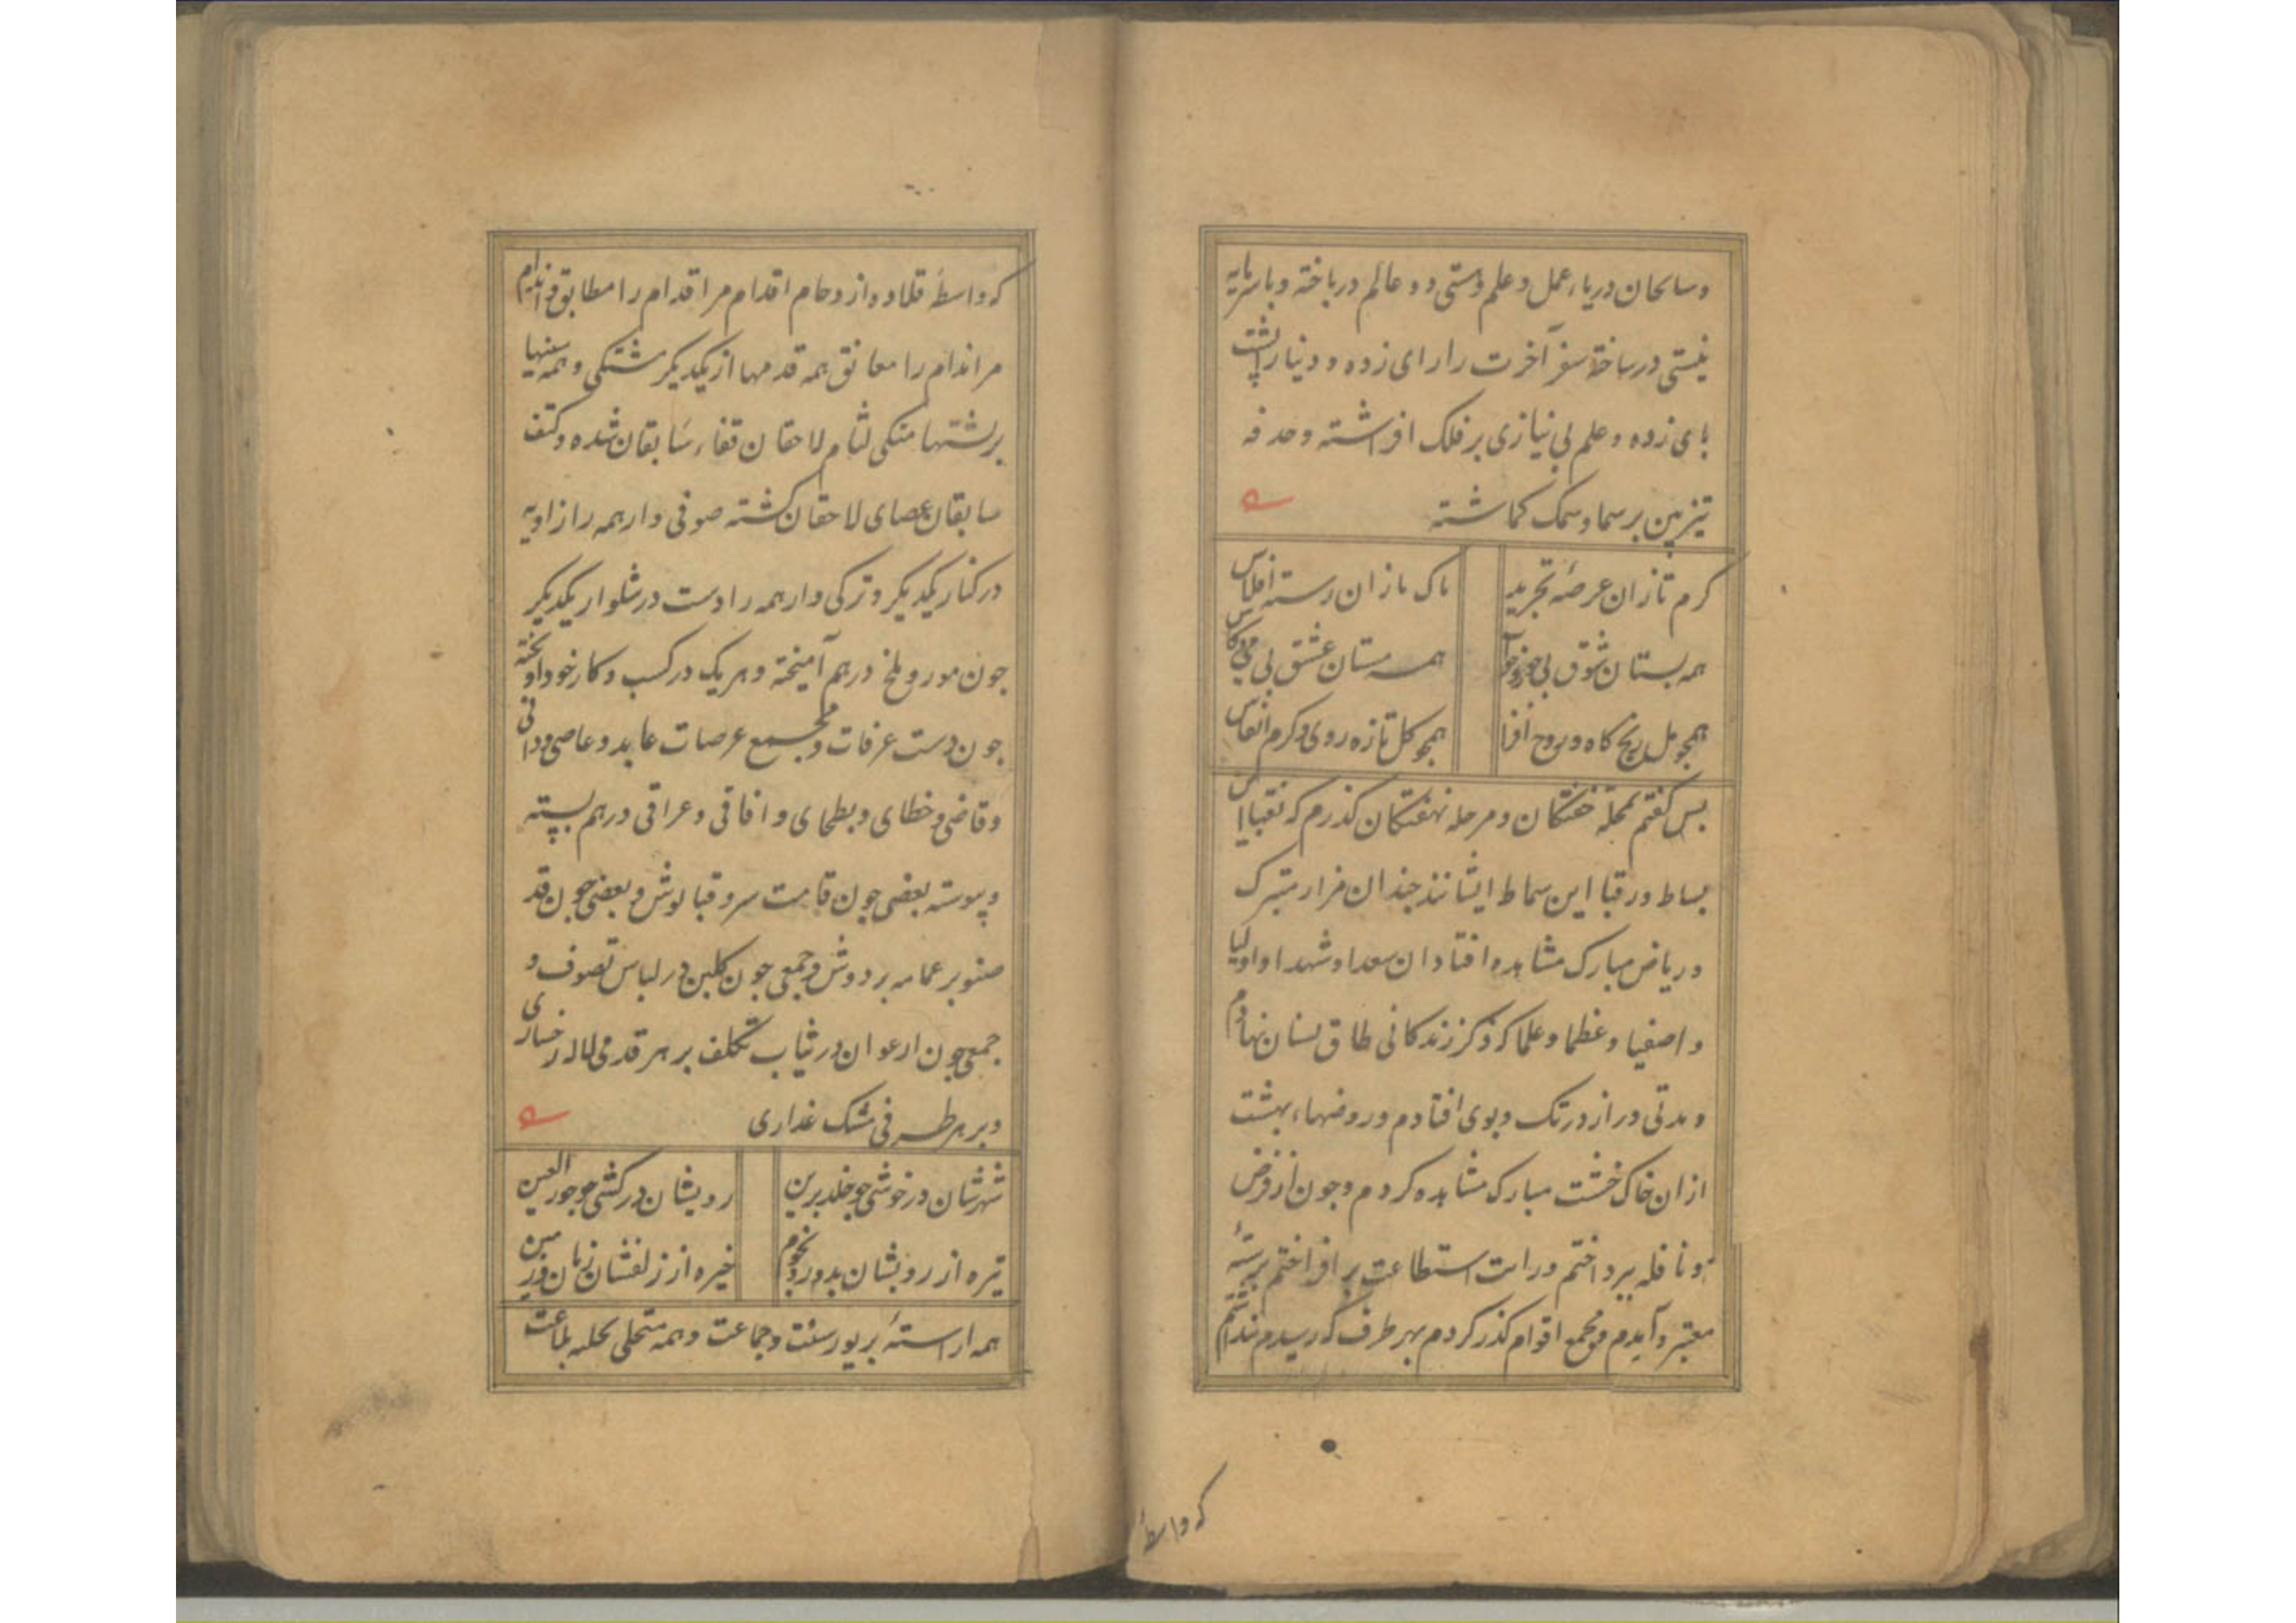 وسابحان دریاء عمل و علم و هستی دو عالم درباخته و باسرمایه
نیستی درساخته سفر آخرت را رای زده و دنیا را پشت
بای زده و علم بی نیازی بر فلک افراشته و حدقه
تیزبین بر سما و سمک کماشته
کرم تازان عرصهٔ تجرید
باک بازان رسته افلاس
همه بستان شوق بی
همه مستان عشق بی می و کاس
همجو مل رنج کاه و روح افزا
همجو کل تازه روی و کرم انفاس
بس کفتم بمحلهٔ خفتکان و مرحله نهفتکان کذرم که نقبا این
بساط و رقبا این سماط ایشانند جندان مزار متبرک
و ریاض مبارک مشاهده افتاد از سعدا و شهدا و اولیا
و اصفیا و عظما و علما که ذکر زندکانی طاق نسیان نهادم
و مدتی دراز در تک و بوی افتادم و روضهاء بهشت
از ان خاک خشت مبارک مشاهده کردم و جون از فرض
و نافله ببرداختم و رایت استطاعت بر افراختم برستهٔ
معتبر و آمدم و بمجمع اقوام کذر کردم بهر طرف که رسیدم بنداشتم
که واسطهٔ
که واسطهٔ قلاده ازدحام اقدام مر اقدام را مطابق و اندام
مر اندام را معانق همه قدمها از یکدیکر مشتکی و همه سینها
بر بشتها متکی لثام لاحقان قفاء سابقان شده و کتف
سابقان عصای لاحقان کشته صوفی وار همه را زاویه
در کنار یکدیکر و ترکی وار همه را دست در شلوار یکدیکر
جون مور و ملخ درهم آمیخته و هر یک در کسب و کار خود آویخته
جون دشت عرفات و مجمع عرصات عابد و عاصی و دانی
و قاصی و خطای و بطحای و افاقی و عراقی درهم بسته
و پیوسته بعضی جون قامت سرو قبا پوش و بعضی جون قد
صنوبر عمامه بر دوش و جمعی جون کلبن در لباس تصوف و
جمعی جون ارغوان در ثیاب تکلف بر هر قدمی لاله رخساری
و بر هر طرفی مشک عذاری
شهرشان در خوشی جو خلد برین
رویشان در کشی جو حور العین
تیره از رویشان بدور و نجوم
خیره از زلفشان زمان و زمین
همه اراستهٔ بزیور سنت و جماعت و همه متحلی بحلیه طاعت